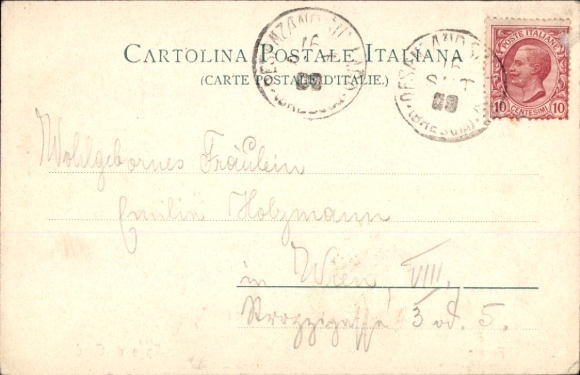 CARTOLINA POSTALE ITALIANA
(CARTE POSTALE D'ITALIE.)
POSTE ITALIANE
10 CENTESIMI 10
Wohlgebornes Fräulein
Emilie Holzmann
in Wien, VIII.
Strozzigasse 3 od. 5.